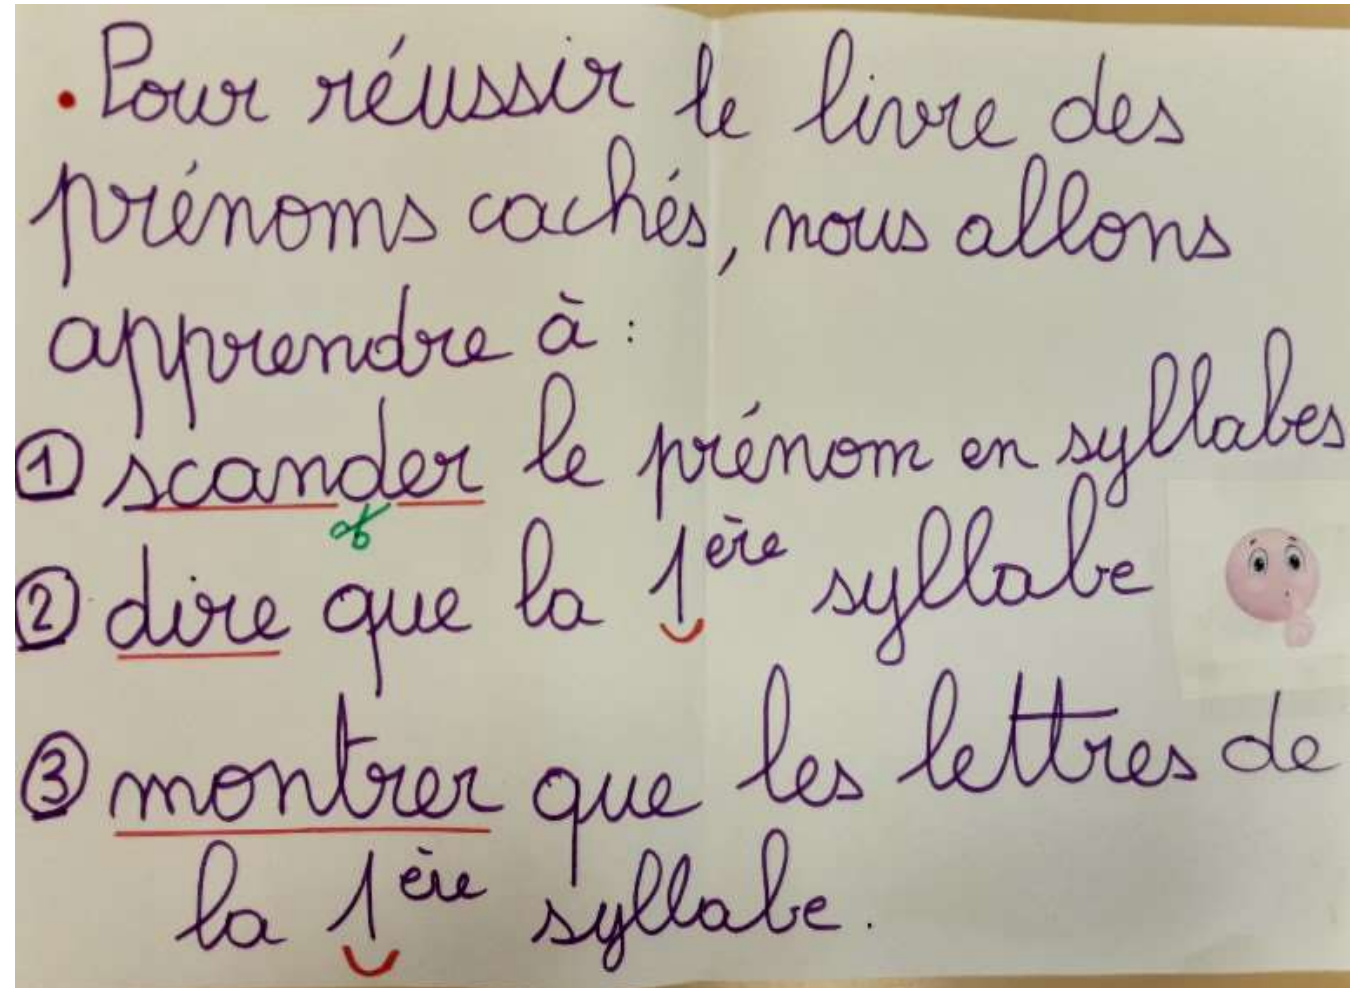 • Pour réussir le livre des
prénoms cachés, nous allons
apprendre à :
① scander le prénom en syllabes
② dire que la 1ère syllabe
③ montrer que les lettres de
la 1ère syllabe.